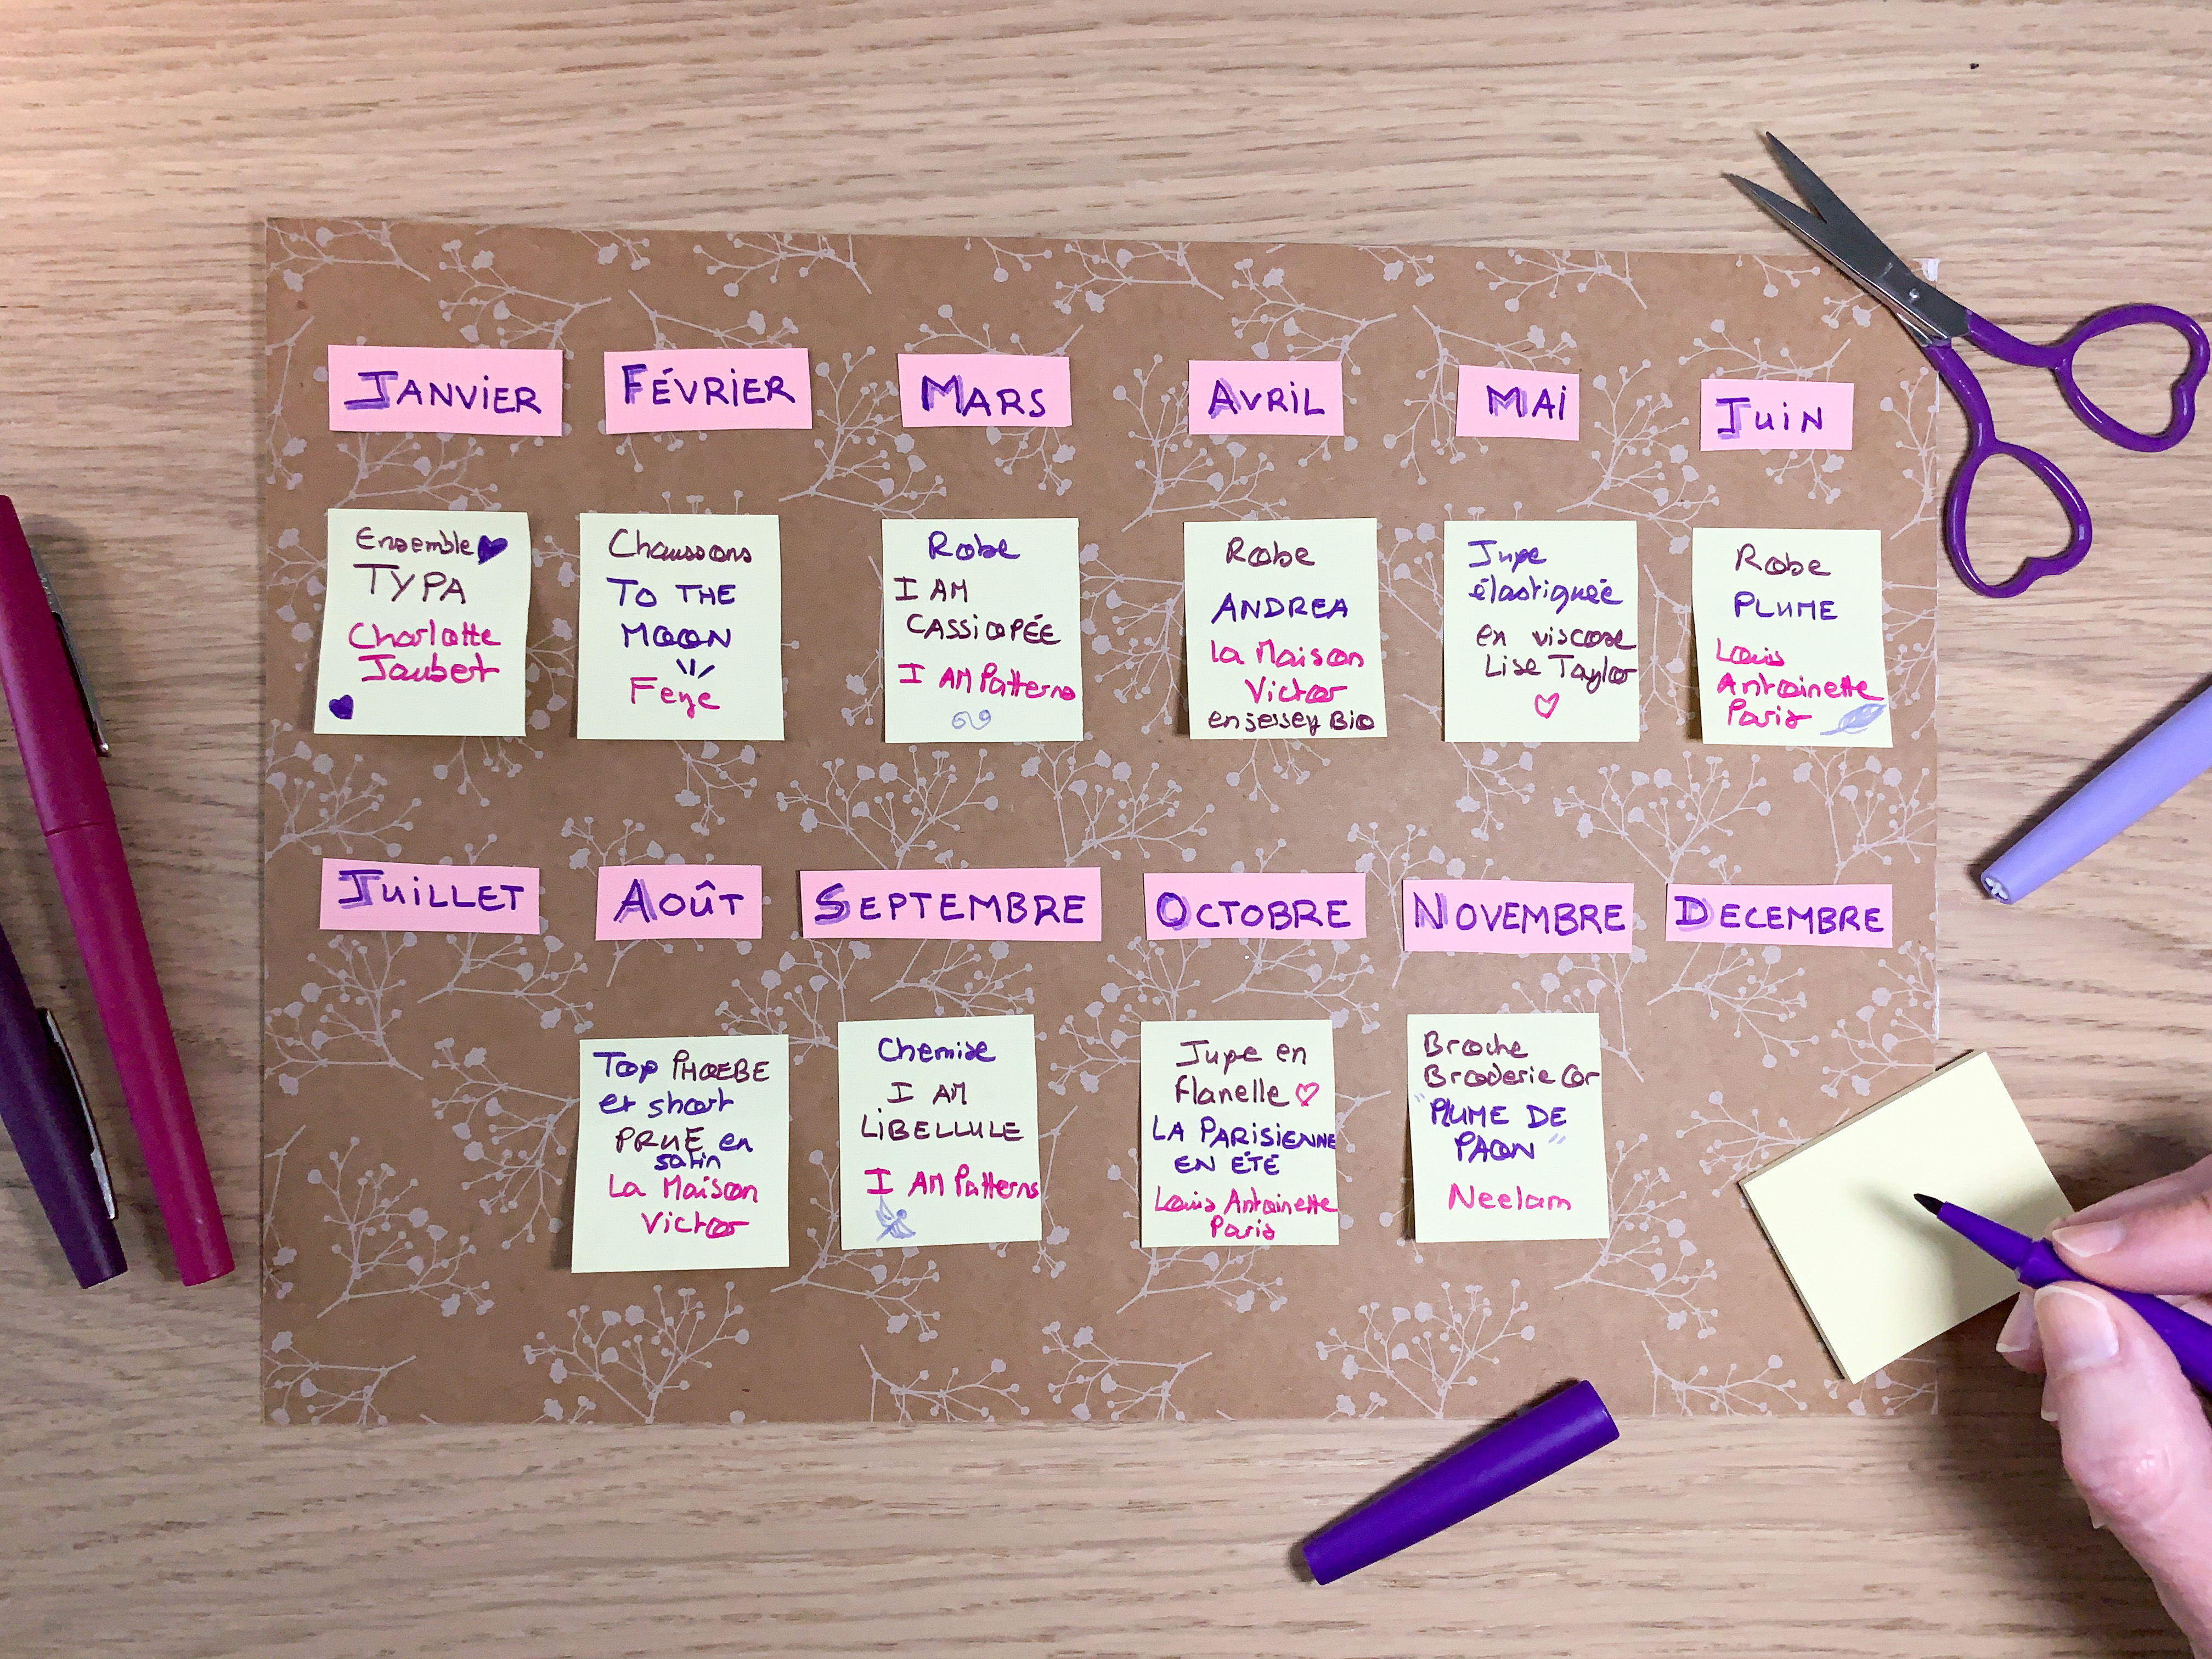 JANVIER
FÉVRIER
MARS
AVRIL
MAI
JUIN
Ensemble
TYPA
Charlotte
Jaubert
Chaussons
TO THE
MOON
Feye
Robe
I AM
CASSIOPÉE
I AM Patterns
Robe
ANDREA
la Maison
Victor
en jersey Bio
Jupe
élastiquéé
en viscose
Lise Taylor
Robe
PLUME
Louis
Antoinette
Paris
JUILLET
AOÛT
SEPTEMBRE
OCTOBRE
NOVEMBRE
DECEMBRE
Top PHOEBE
et short
PRUE en
satin
La Maison
Victor
Chemise
I AM
LIBELLULE
I AM Patterns
Jupe en
flanelle
LA PARISIENNE
EN ÉTÉ
Louis Antoinette
Paris
Broche
Broderie Cor
"PLUME DE
PAON"
Neelam